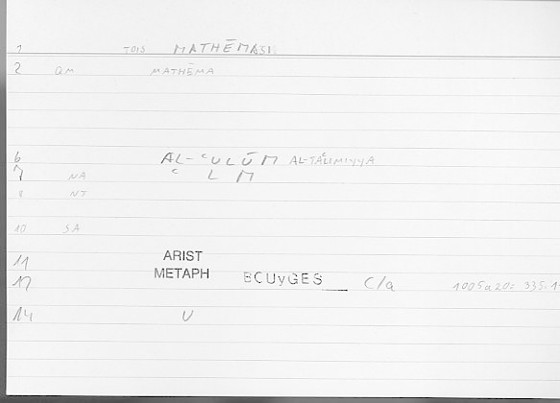 1 TOIS MATHĒMASI
2 QM MATHĒMA
6 AL-ʿULŪM AL-TAʿLĪMIYYA
7 NA ʿ L M
8 NT
10 SA
11 ARIST
METAPH BCUyGES__ C/a
12 1005a20: 335.1
14 U